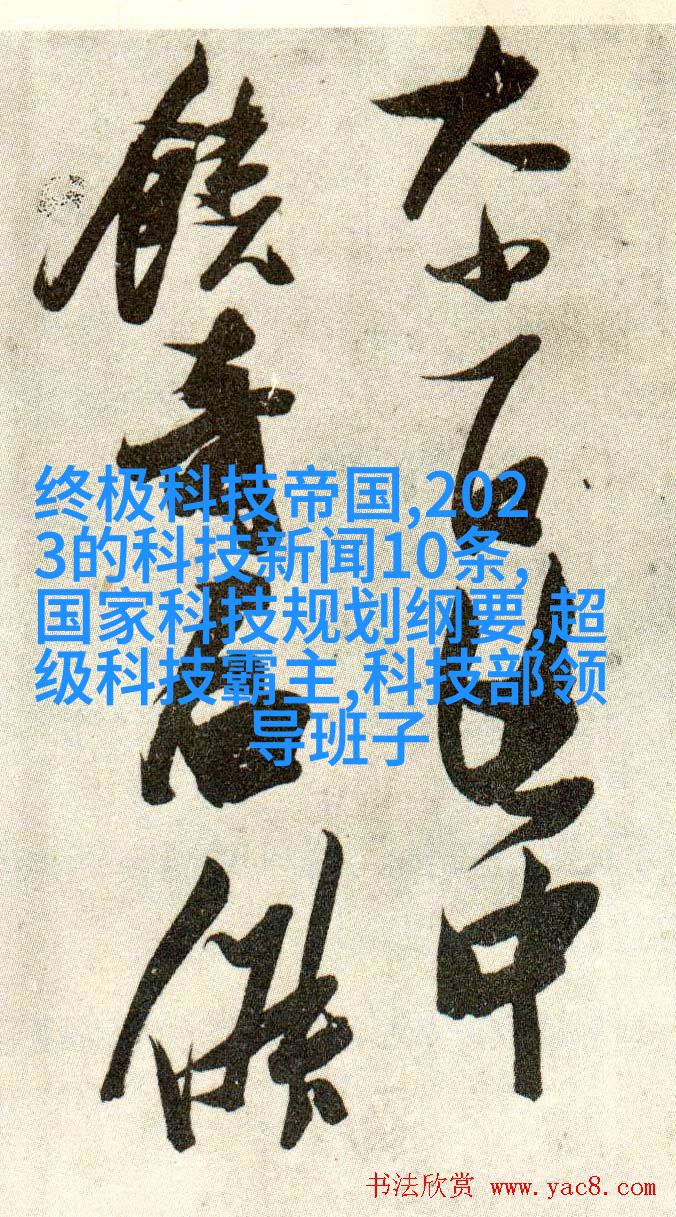 大小中
饒奇
终极科技帝国,202
3的科技新闻10条,
国家科技规划纲要,超
级科技霸主,科技部领
导班子
书法欣赏 www.yac8.com